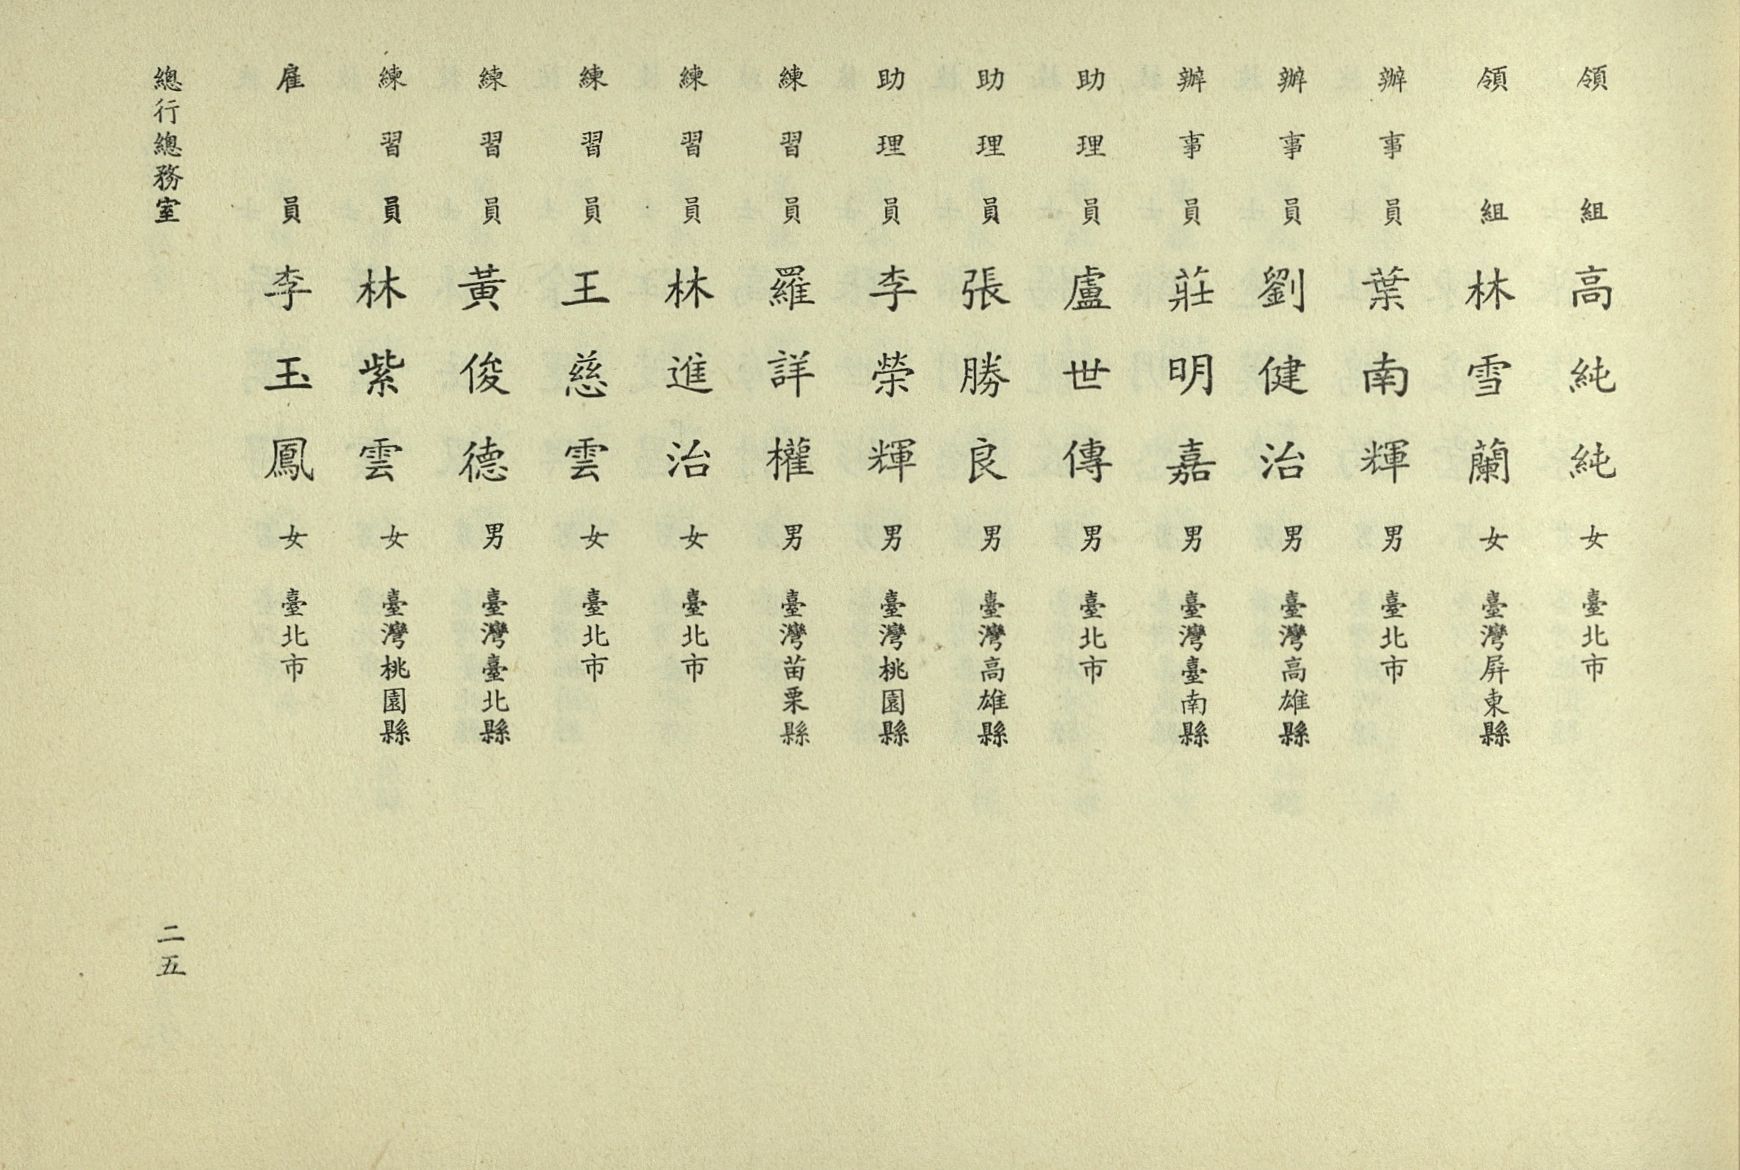 領組高純純女臺北市
領組林雪蘭女臺灣屏東縣
辦事員葉南輝男臺北市
辦事員劉健治男臺灣高雄縣
辦事員莊明嘉男臺灣臺南縣
助理員盧世傳男臺北市
助理員張勝良男臺灣高雄縣
助理員李榮輝男臺灣桃園縣
練習員羅詳權男臺灣苗栗縣
練習員林進治女臺北市
練習員王慈雲女臺北市
練習員黃俊德男臺灣臺北縣
練習員林紫雲女臺灣桃園縣
雇員李玉鳳女臺北市
總行總務室
二五